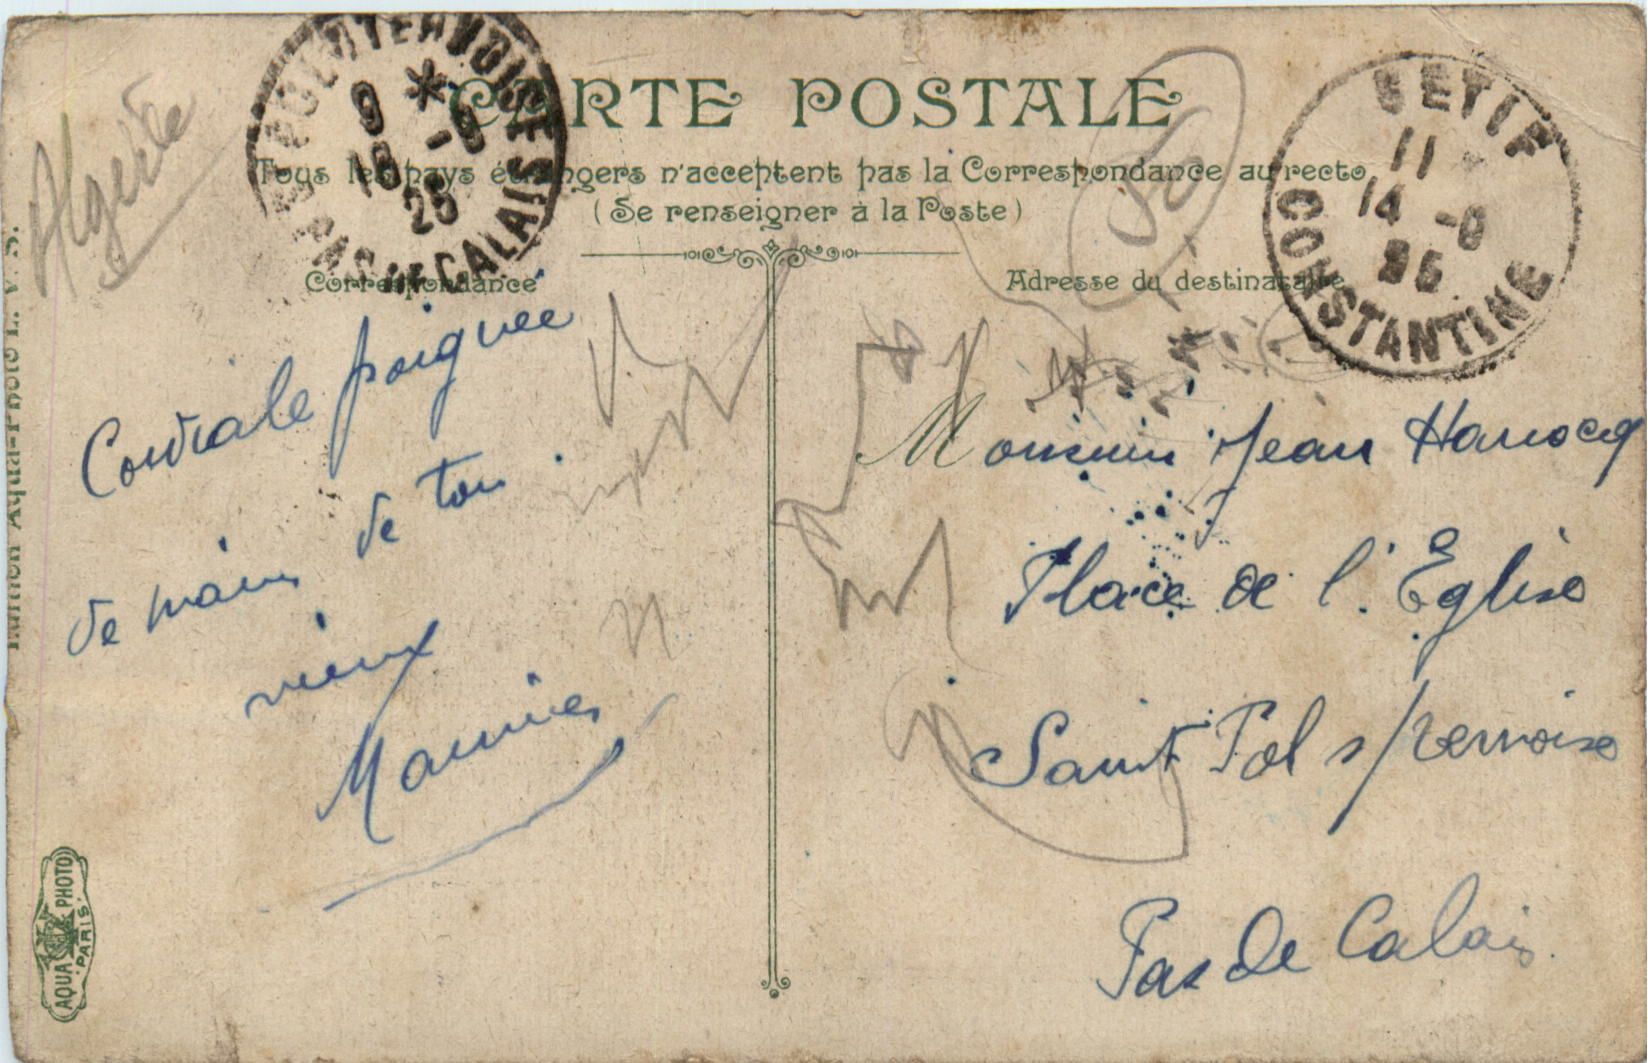 CARTE POSTALE
Tous les pays étrangers n'acceptent pas la Correspondance au recto
(Se renseigner à la Poste)
Correspondance
Adresse du destinataire
Algérie
PAS DE CALAIS
9 * -9
18
25
SETIF
11
14 -9
CONSTANTINE
Cordiale poignée
de main de ton
vieux
Maurice
Monsieur Jean
Place de l'Eglise
Saint Pol s/Ternoise
Pas de Calais
AQUA PHOTO
PARIS